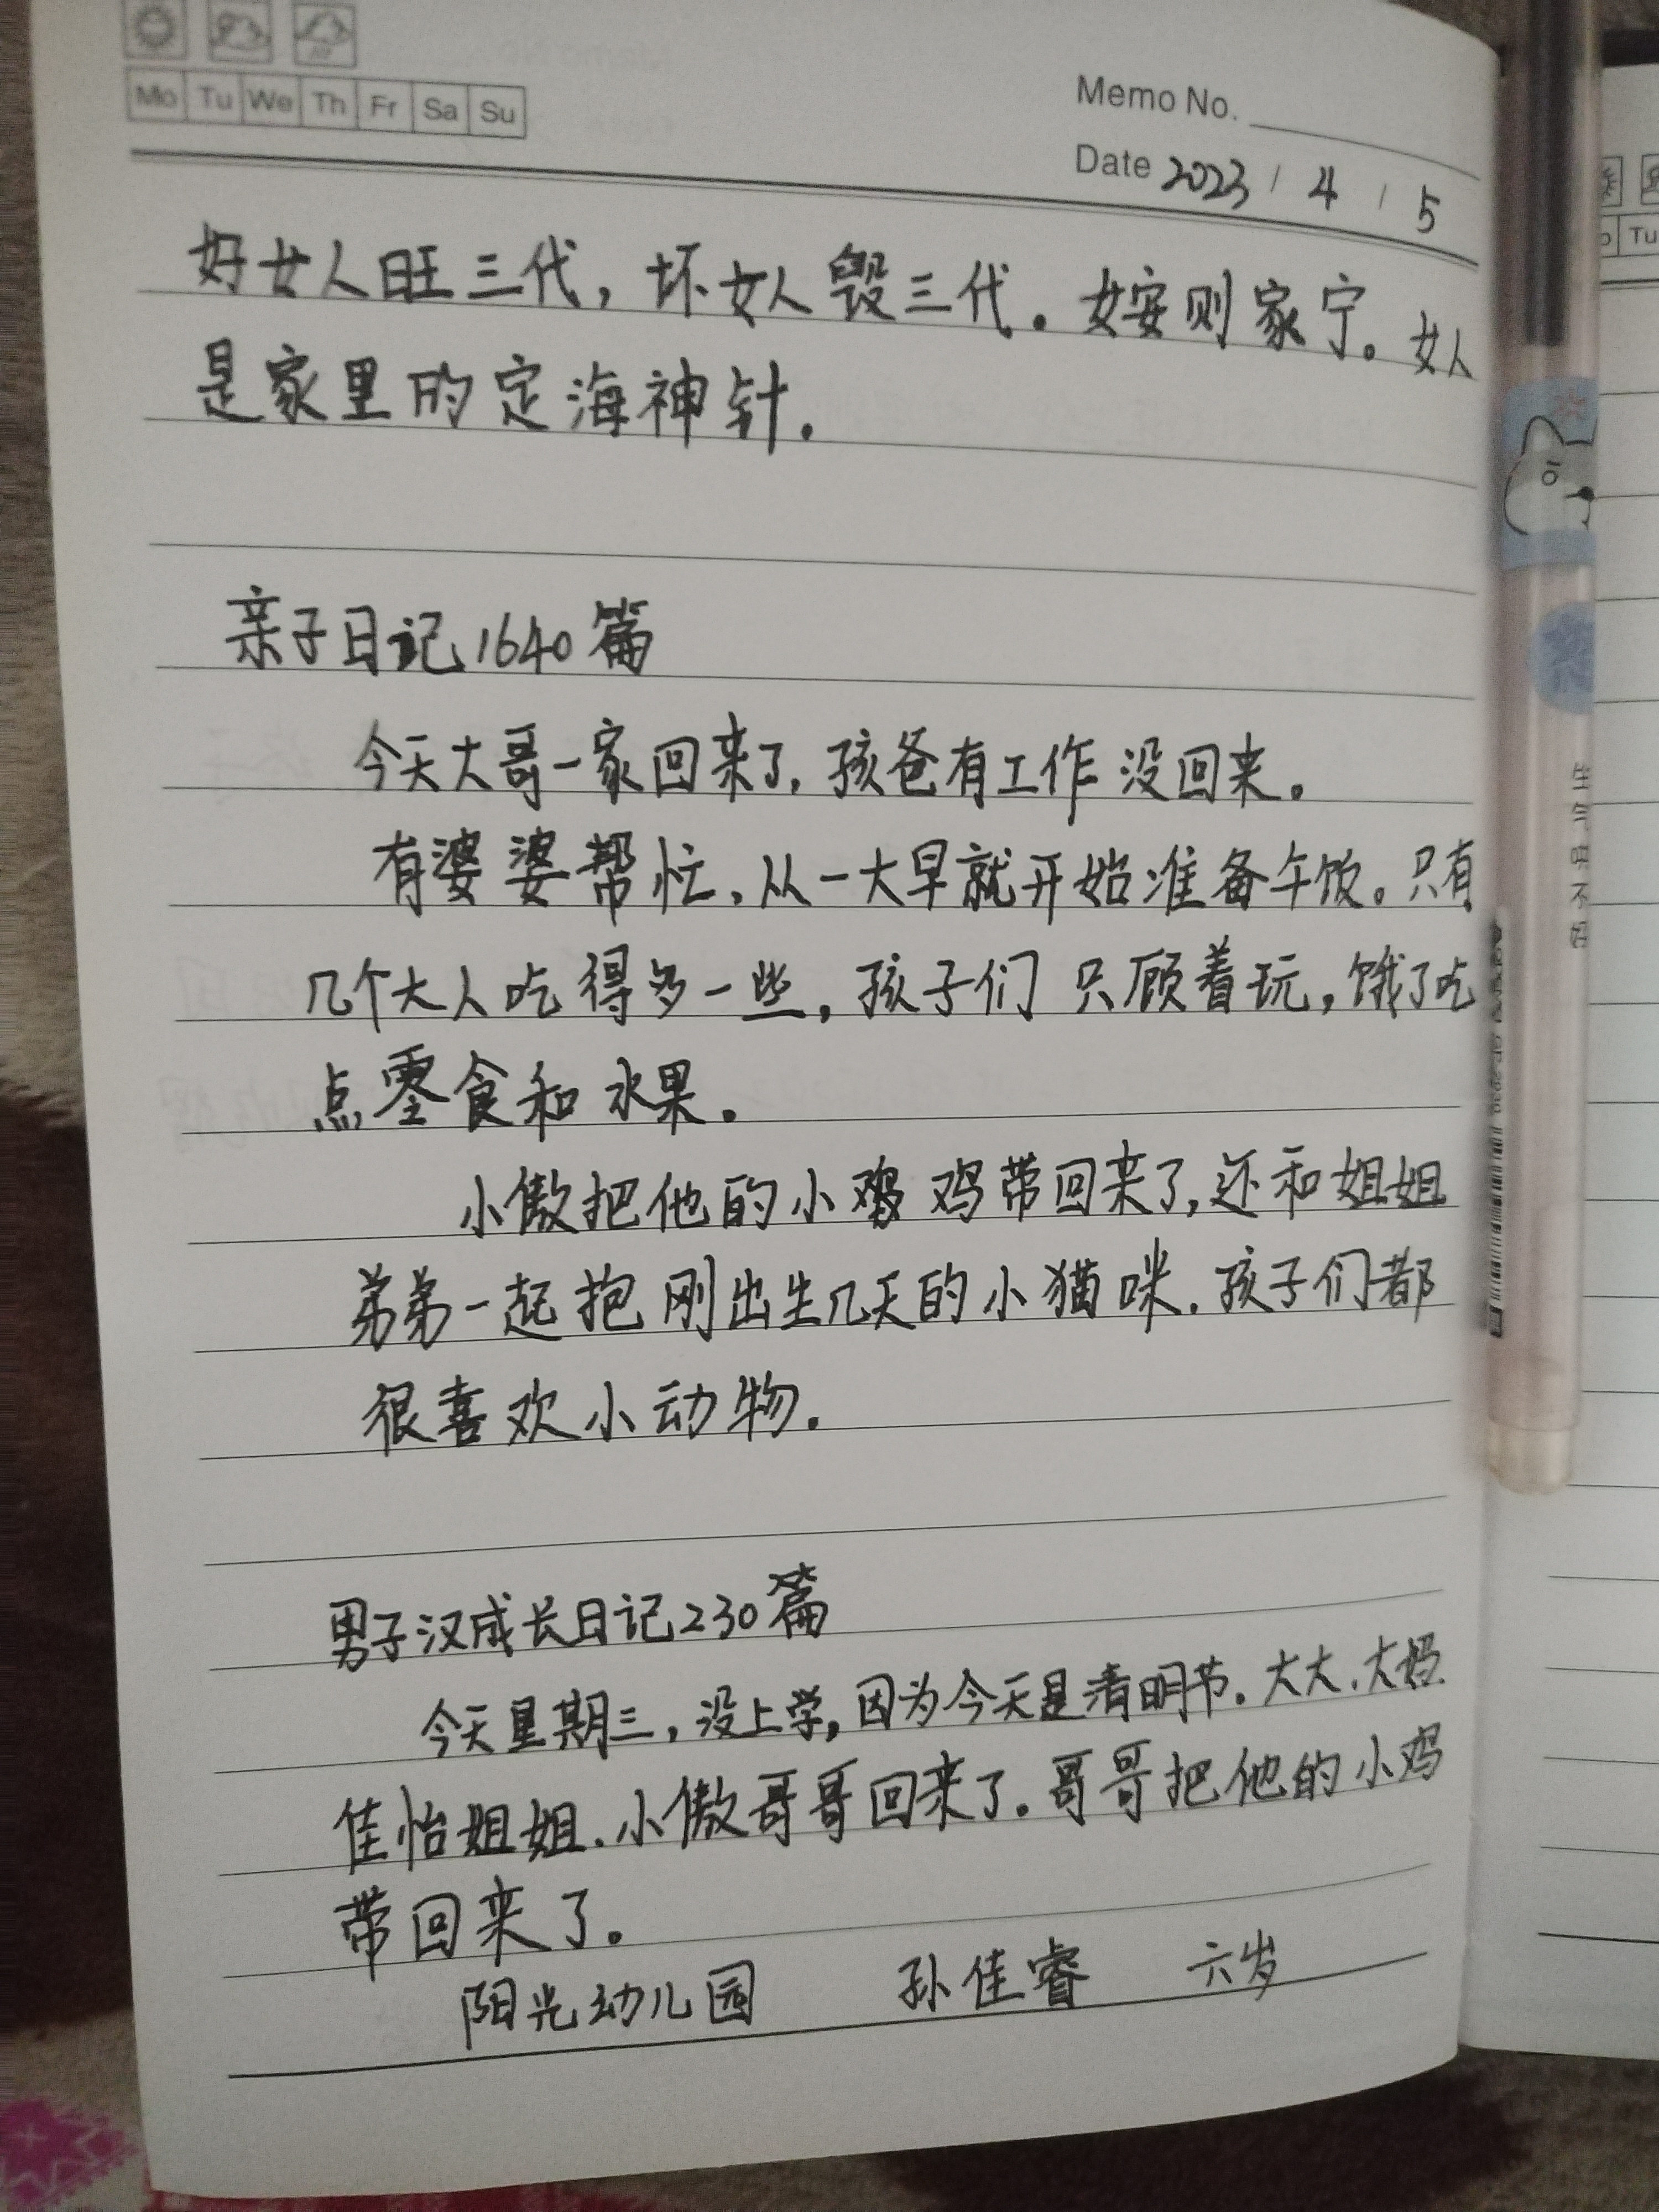 Mo Tu We Th Fr Sa Su
Memo No.
Date 2023 / 4 / 5
好女人旺三代，坏女人毁三代。女安则家宁。女人
是家里的定海神针.
亲子日记1640篇
今天大哥一家回来了.孩爸有工作没回来.
有婆婆帮忙.从一大早就开始准备午饭。只有
几个大人吃得多一些，孩子们只顾着玩，饿了吃
点零食和水果。
小傲把他的小鸡鸡带回来了,还和姐姐
弟弟一起抱刚出生几天的小猫咪.孩子们都
很喜欢小动物.
男子汉成长日记230篇
今天星期三,没上学,因为今天是清明节.大大.大妈.
佳怡姐姐.小傲哥哥回来了.哥哥把他的小鸡
带回来了.
阳光幼儿园 孙佳睿 六岁
Tu
不好